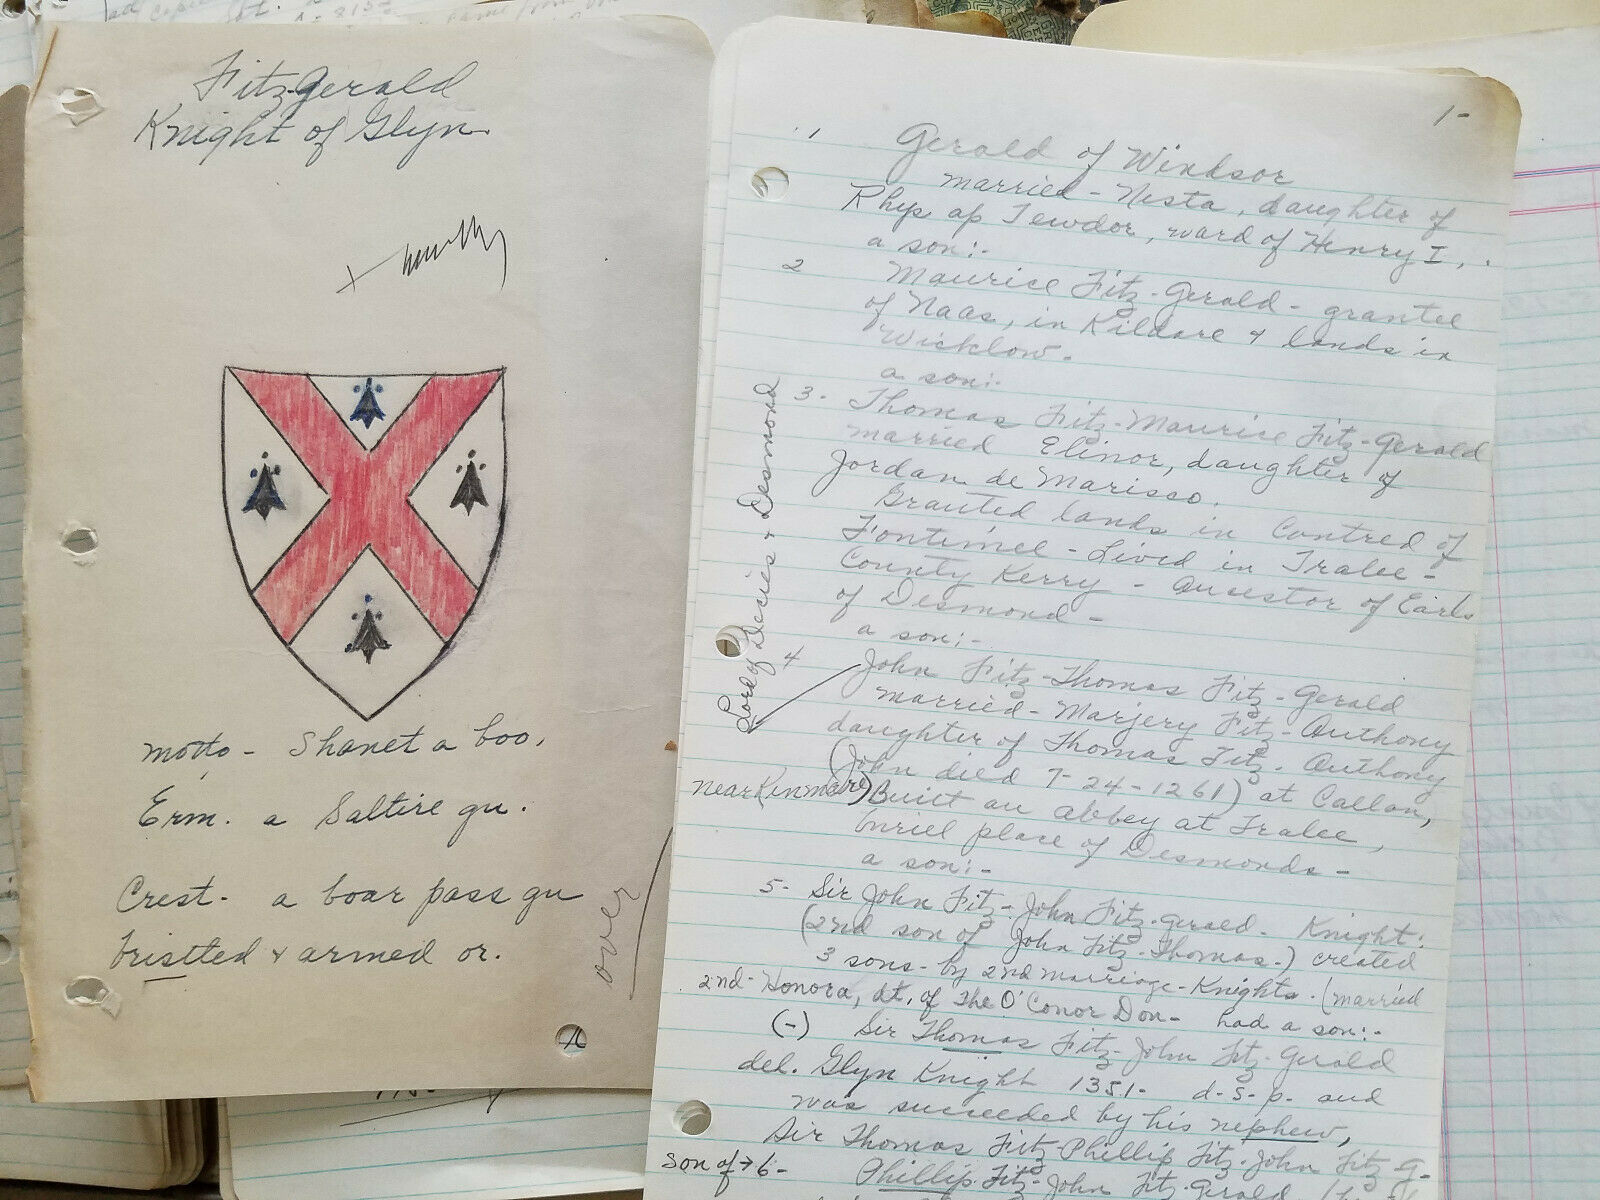 Fitzgerald
Knight of Glyn
motto - Shanet a boo.
Erm. a Saltire gu.
Crest - a boar pass gu
bristled & armed or.
over
1-
1 Gerald of Windsor
married - Nesta, daughter of
Rhys ap Tewdor, ward of Henry I,
a son:-
2 Maurice Fitz-Gerald - grantee
of Naas, in Kildare & lands in
Wicklow.
a son:-
3. Thomas Fitz-Maurice Fitz-Gerald
married Elinor, daughter of
Jordan de Marisso.
Granted lands in Cantred of
Fontimel - Lived in Tralee -
County Kerry - Ancestor of Earls
of Desmond -
a son:-
Lord of Decies & Desmond
4 John Fitz-Thomas Fitz-Gerald
married - Marjery Fitz-Anthony
daughter of Thomas Fitz-Anthony
(John died 7-24-1261) at Callan,
near Kenmare) Built an abbey at Tralee,
buriel place of Desmonds -
a son:-
5- Sir John Fitz-John Fitz-Gerald - Knight:
(2nd son of John Fitz-Thomas-) created
3 sons - by 2nd marriage - Knights. (married
2nd - Honora, dt. of The O'Conor Don - had a son:-
(-) Sir Thomas Fitz-John Fitz-Gerald
del. Glyn Knight 1351- d-s-p. and
was succeeded by his nephew,
Sir Thomas Fitz-Phillip Fitz-John Fitz G-
son of → 6- Phillip Fitz-John Fitz-Gerald